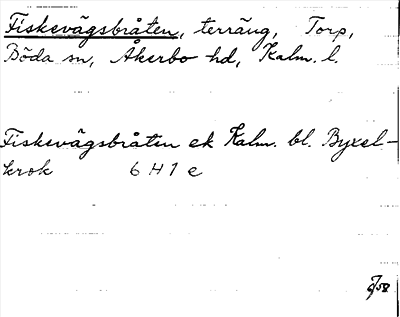 Fiskevägsbråten, terräng, Torp,
Böda sn, Åkerbo hd, Kalm. l.
Fiskevägsbråten ek Kalm. bl. Byxel-
krok 6 H 1 e